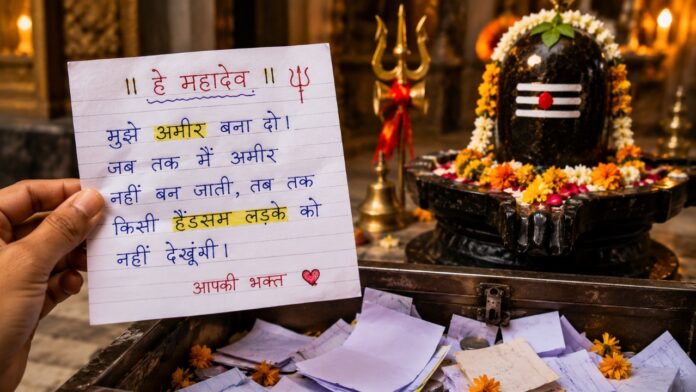 || हे महादेव ||
मुझे अमीर बना दो।
जब तक मैं अमीर
नहीं बन जाती, तब तक
किसी हैंडसम लड़के को
नहीं देखूंगी।
आपकी भक्त